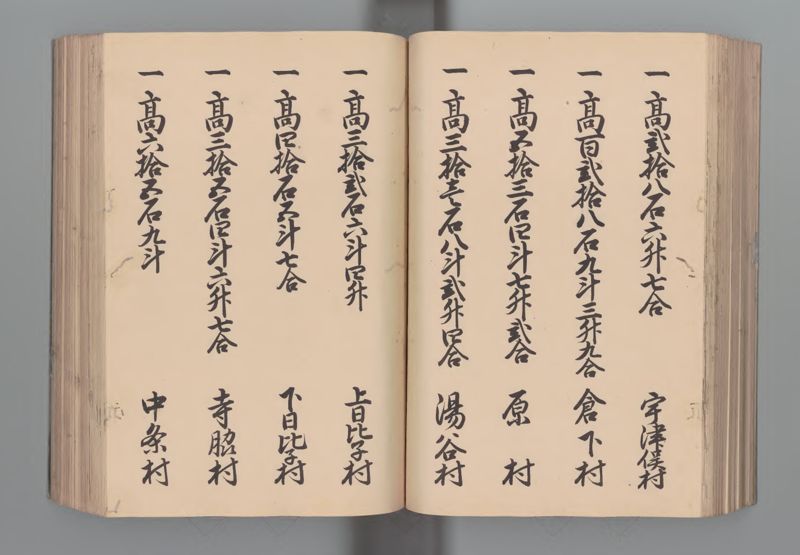 一高弐拾八石六升七合 宇津俣村
一高百弐拾八石九斗三升九合 倉下村
一高五拾三石四斗七升弐合 原村
一高三拾壱石八斗弐升四合 湯谷村
一高三拾弐石六斗四升 上日比子村
一高四拾石五斗七合 下日比子村
一高三拾五石四斗六升七合 寺脇村
一高六拾五石九斗 中条村